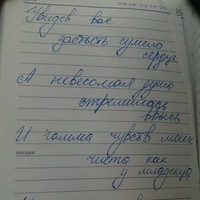 Увидев вас
застыть сумело
сердце
А невесомая душа
стремилась
ввысь
И гамма чувств моих
чиста как
у младенца